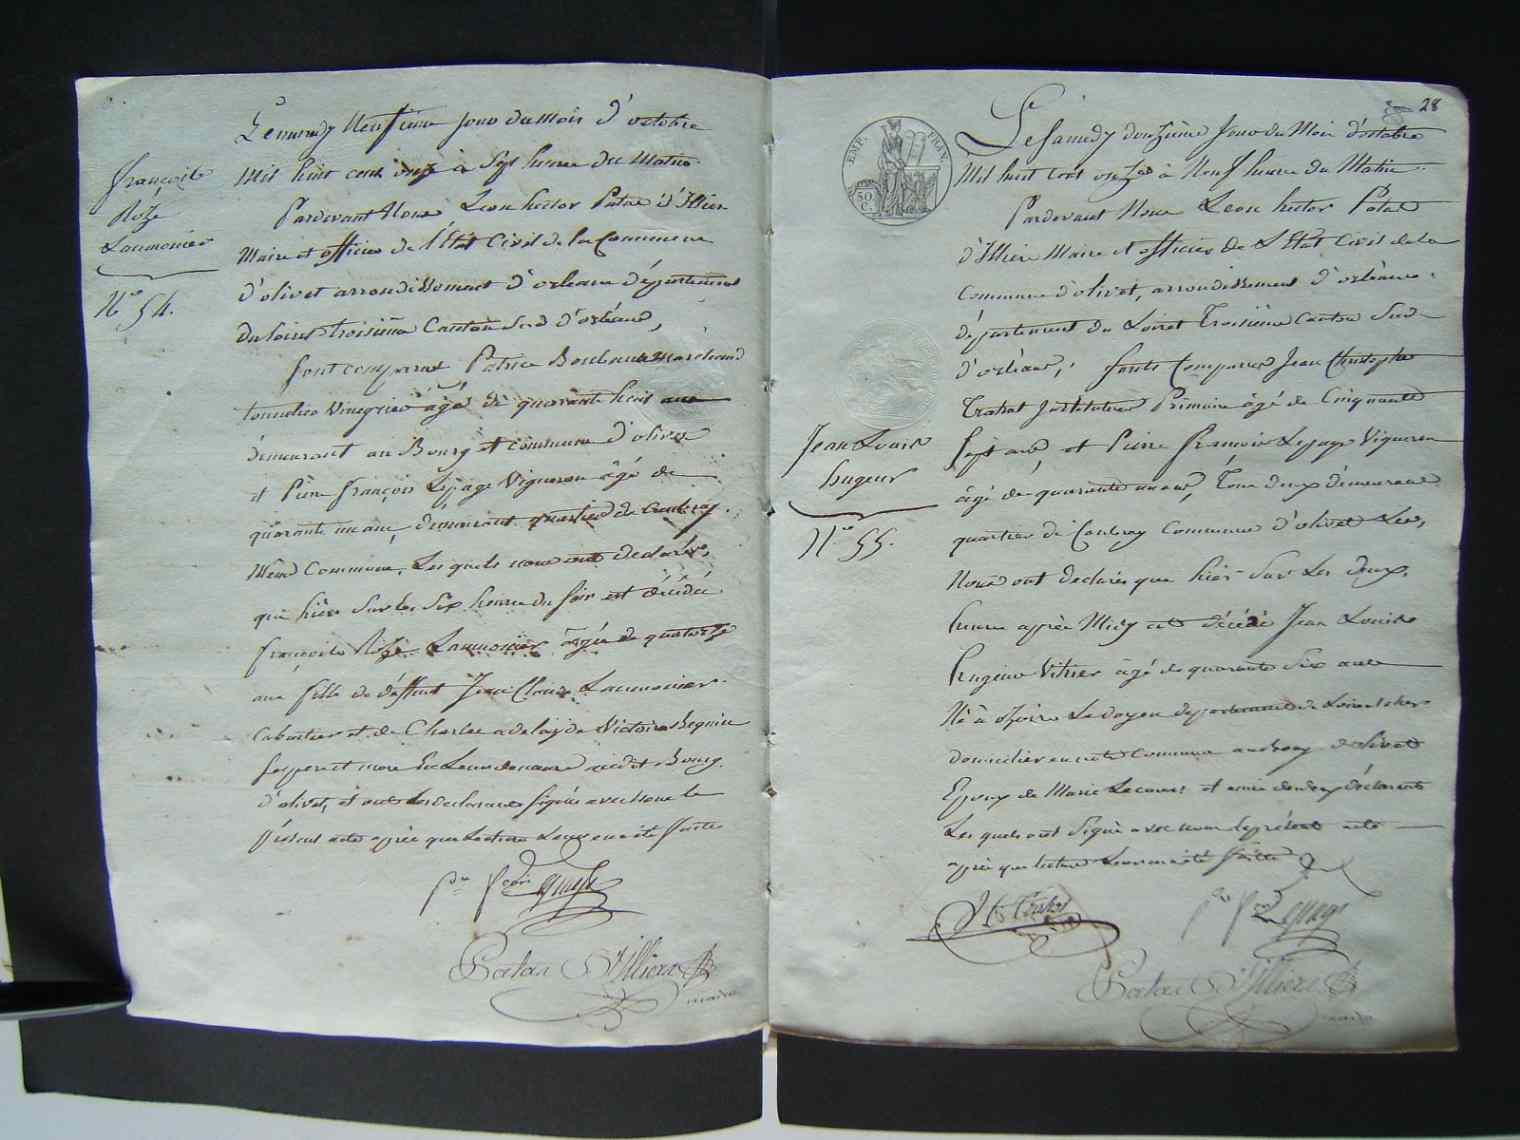 françoise
Roze
Laumonier
N.° 54.
Le mercredy Neufième Jour du Mois d'octobre
Mil huit cent onze à Sept heures du Matin
Pardevant Nous Leon hector Patas d'Illiers
Maire et officier de l'Etat Civil de la Commune
d'olivet arrondissement d'orleans département
du loiret troisième Canton Sud d'orléans,
Sont comparus Patrice marchand
tonnelier Vinegrier âgé de quarante huit ans
demeurant au Bourg et commune d'olivet
et Pierre françois Lepage Vigneron âgé de
quarante un ans, demeurant quartier de Coubray
même Commune, Les quels nous ont declarés,
que hier Sur les Six heures du Soir est décédée
françoise Roze Laumonier âgée de quatorze
ans fille de déffunt Jean Laumonier
Cabartier et de Charles adelayde Victoire
ses pere et mere En Leur demeure audit Bourg
d'olivet, et ont les declarans Signés avec nous le
Présent acte après que Lecture Leur en a été faite
Pre fçois Lepage
Patas D'Illiers
maire
28
EMP. FRAN.
50 C.
Le Samedy douzième Jour du Mois d'octobre
Mil huit cent onze à Neuf heures du Matin
Pardevant Nous Leon hector Patas
d'Illiers Maire et officier de L'Etat Civil de la
Commune d'olivet, arrondissement d'orléans
département du Loiret Troisième Canton Sud
d'orléans, Sont Comparus Jean Christophe
Instituteur Primaire âgé de Cinquante
Sept ans et Pierre françois Lepage Vigneron
âgé de quarante un ans, Tous deux demeurans
quartier de Coubray Commune d'olivet Les,
Jean Louis
hugeus
N.° 55.
Nous ont declarés que hier Sur Les deux
heures après Midy est décédé Jean Louis
âgé de quarante Six ans
Né à département de Loir et cher
domicilier en cette Commune au Bourg d'olivet
Epoux de Marie et amis des deux déclarants
Les quels ont Signé avec nous le présent acte
après que lecture Leur en a été faitte
Pre fçois Lepage
Patas D'Illiers
maire